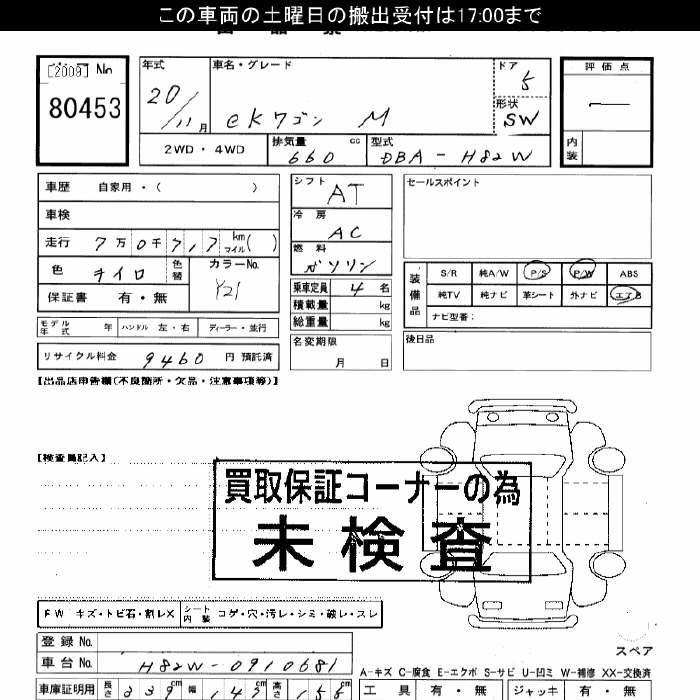 この車両の土曜日の搬出受付は17:00まで
[2009] No
80453
年式 20/11月
車名・グレード eKワゴン M
ドア 5
形状 SW
評価点
内装
2WD・4WD
排気量 660 cc
型式 DBA-H82W
車歴 自家用・( )
車検
走行 7万0千717 km マイル( )
色 キイロ 色替 カラーNo. Y21
保証書 有・無
モデル年式 年 ハンドル 左・右 ディーラー・並行
リサイクル料金 9460 円 預託済
シフト AT
冷房 AC
燃料 ガソリン
乗車定員 4 名
積載量 kg
総重量 kg
名変期限 月 日
セールスポイント
装備品
S/R 純A/W P/S P/W ABS
純TV 純ナビ 革シート 外ナビ エアB
ナビ型番:
後日品
【出品店申告欄(不良箇所・欠品・注意事項等)】
【検査員記入】
買取保証コーナーの為
未検査
FW キズ・トビ石・割レX シート内装 コゲ・穴・汚レ・シミ・破レ・スレ
登録No.
車台No. H82W-0910681
スペア
A-キズ C-腐食 E-エクボ S-サビ U-凹ミ W-補修 XX-交換済
車庫証明用 長さ 339cm 幅 147cm 高さ 155cm
工具 有・無 ジャッキ 有・無